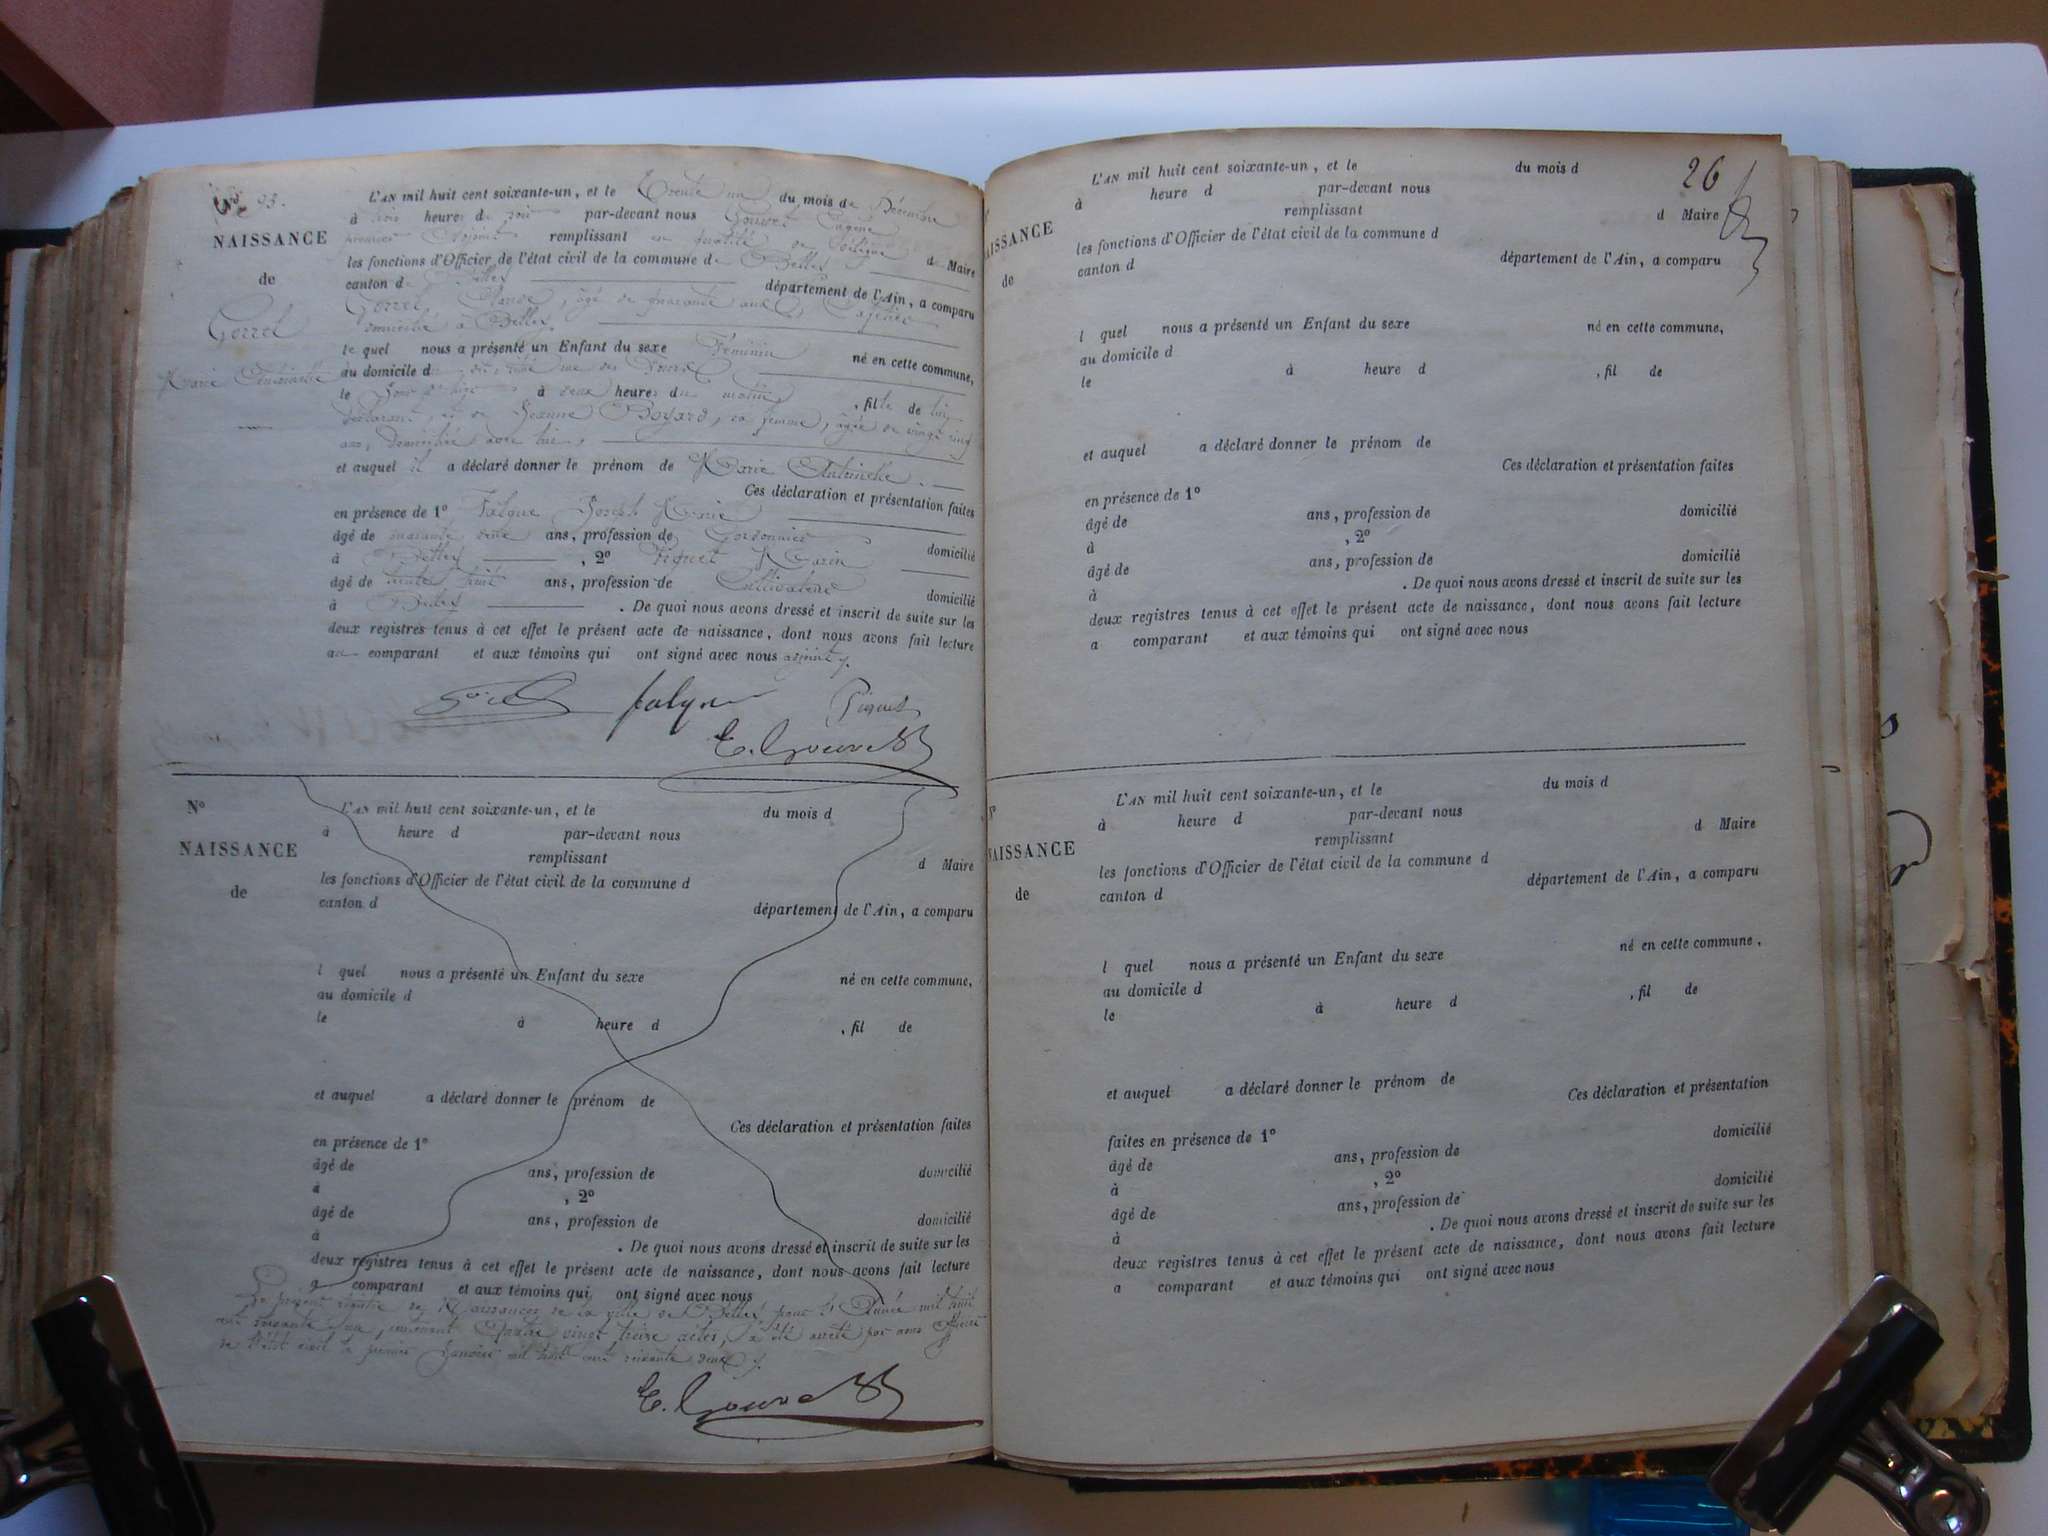 93.
NAISSANCE
de
Gorrel
Marie Antoinette
L'AN mil huit cent soixante-un, et le Trente un du mois de Décembre
à trois heures du soir par-devant nous Gouvet Eugène
premier Adjoint remplissant en qualité de délégué d Maire
les fonctions d'Officier de l'état civil de la commune de Belley
canton de Belley département de l'Ain, a comparu
Gorrel Claude, âgé de quarante ans,
domicilié à Belley,
le quel nous a présenté un Enfant du sexe Féminin né en cette commune,
au domicile d rue des
le à deux heures du matin, fille de lui
déclarant, et de Jeanne Boyard, sa femme, âgée de vingt cinq
ans, domiciliée avec lui,
et auquel il a déclaré donner le prénom de Marie Antoinette.
Ces déclaration et présentation faites
en présence de 1° Falque Joseph Marie
âgé de quarante ans, profession de Cordonnier domicilié
à Belley, 2° Piquet Marin
âgé de trente huit ans, profession de Cultivateur domicilié
à Belley. De quoi nous avons dressé et inscrit de suite sur les
deux registres tenus à cet effet le présent acte de naissance, dont nous avons fait lecture
au comparant et aux témoins qui ont signé avec nous adjoint.
Falque Piquet
E. Gouvet
N°
NAISSANCE
de
L'AN mil huit cent soixante-un, et le du mois d
à heure d par-devant nous
remplissant d Maire
les fonctions d'Officier de l'état civil de la commune d
canton d département de l'Ain, a comparu
l quel nous a présenté un Enfant du sexe né en cette commune,
au domicile d
le à heure d , fil de
et auquel a déclaré donner le prénom de
Ces déclaration et présentation faites
en présence de 1°
âgé de ans, profession de domicilié
à , 2°
âgé de ans, profession de domicilié
à . De quoi nous avons dressé et inscrit de suite sur les
deux registres tenus à cet effet le présent acte de naissance, dont nous avons fait lecture
a comparant et aux témoins qui ont signé avec nous
Le présent registre des Naissances de la ville de Belley pour l'Année mil huit
cent soixante un, contenant Quatre vingt treize actes, a été arrêté par nous Officier
de l'état civil le premier Janvier mil huit cent soixante deux.
E. Gouvet
26
AISSANCE
de
L'AN mil huit cent soixante-un, et le du mois d
à heure d par-devant nous
remplissant d Maire
les fonctions d'Officier de l'état civil de la commune d
canton d département de l'Ain, a comparu
l quel nous a présenté un Enfant du sexe né en cette commune,
au domicile d
le à heure d , fil de
et auquel a déclaré donner le prénom de
Ces déclaration et présentation faites
en présence de 1°
âgé de ans, profession de domicilié
à , 2°
âgé de ans, profession de domicilié
à . De quoi nous avons dressé et inscrit de suite sur les
deux registres tenus à cet effet le présent acte de naissance, dont nous avons fait lecture
a comparant et aux témoins qui ont signé avec nous
AISSANCE
de
L'AN mil huit cent soixante-un, et le du mois d
à heure d par-devant nous
remplissant d Maire
les fonctions d'Officier de l'état civil de la commune d
canton d département de l'Ain, a comparu
l quel nous a présenté un Enfant du sexe né en cette commune,
au domicile d
le à heure d , fil de
et auquel a déclaré donner le prénom de
Ces déclaration et présentation
faites en présence de 1°
âgé de ans, profession de domicilié
à , 2°
âgé de ans, profession de domicilié
à . De quoi nous avons dressé et inscrit de suite sur les
deux registres tenus à cet effet le présent acte de naissance, dont nous avons fait lecture
a comparant et aux témoins qui ont signé avec nous